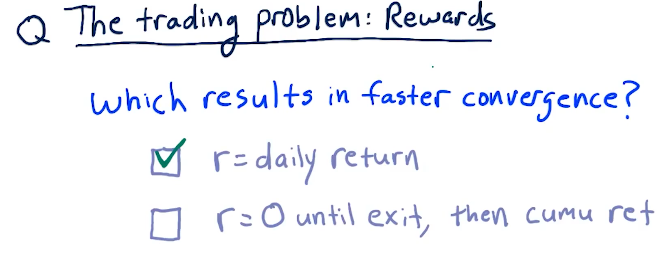 Q The trading problem: Rewards
Which results in faster convergence?
r=daily return
r=0 until exit, then cumu ret